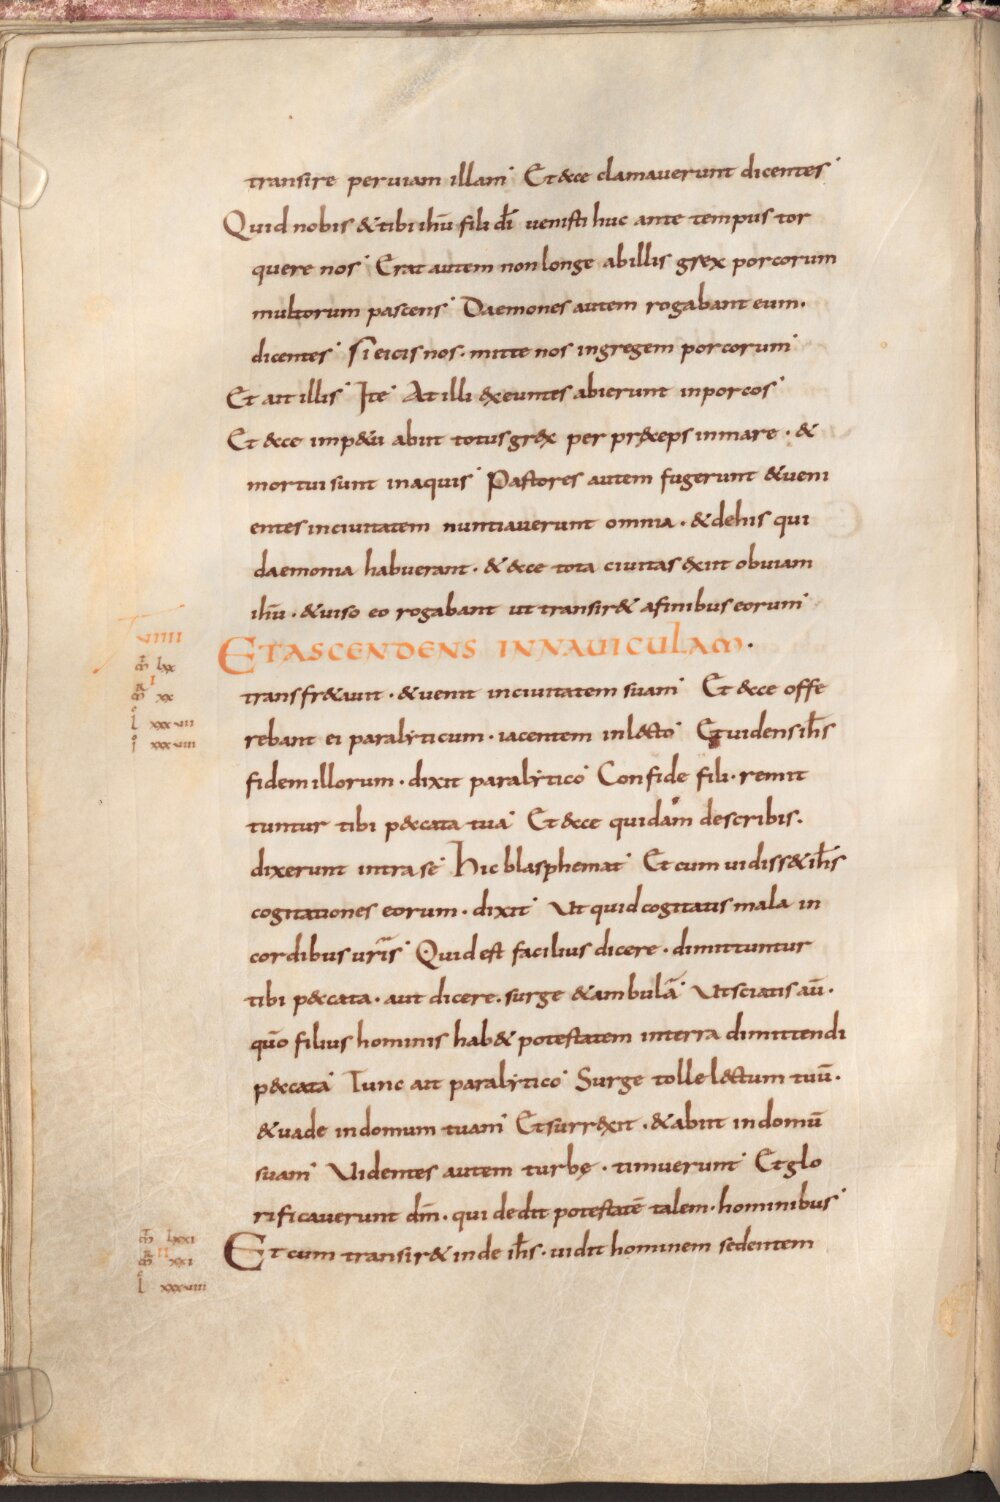 transire per uiam illam Et ecce clamauerunt dicentes
Quid nobis & tibi ihū fili dī uenisti huc ante tempus tor
quere nos Erat autem non longe ab illis grex porcorum
multorum pascens Daemones autem rogabant eum.
dicentes Si eicis nos. mitte nos in gregem porcorum
Et ait illis Ite At illi exeuntes abierunt in porcos
Et ecce imp&u abiit totus grex per preceps in mare. &
mortui sunt in aquis Pastores autem fugerunt & ueni
entes in ciuitatem nuntiauerunt omnia. & de his qui
daemonia habuerant. & ecce tota ciuitas exiit obuiam
ihū. & uiso eo rogabant ut transir& a finibus eorum
uiiii
ET ASCENDENS IN NAUICULAM.
lxx
transfr&auit. & uenit in ciuitatem suam Et ecce offe
I
xx
rebant ei paralyticum. iacentem in lecto Et uidens ihs
l xxxuiii
i xxxuiii
fidem illorum. dixit paralytico Confide fili. remit
tuntur tibi peccata tua Et ecce quidam de scribis.
dixerunt intra se Hic blasphemat Et cum uidiss& ihs
cogitationes eorum. dixit Ut quid cogitatis mala in
cordibus uris Quid est facilius dicere. dimittuntur
tibi peccata. aut dicere. surge & ambulā Ut sciatis aū.
quō filius hominis hab& potestatem in terra dimittendi
peccata Tunc ait paralytico Surge tolle lectum tuū.
& uade in domum tuam Et surrexit. & abiit in domū
suam Uidentes autem turbę. timuerunt Et glo
rificauerunt dm̄. qui dedit potestatē talem. hominibus
lxxi
Et cum transir& inde ihs. uidit hominem sedentem
II
xxi
l xxxuiiii